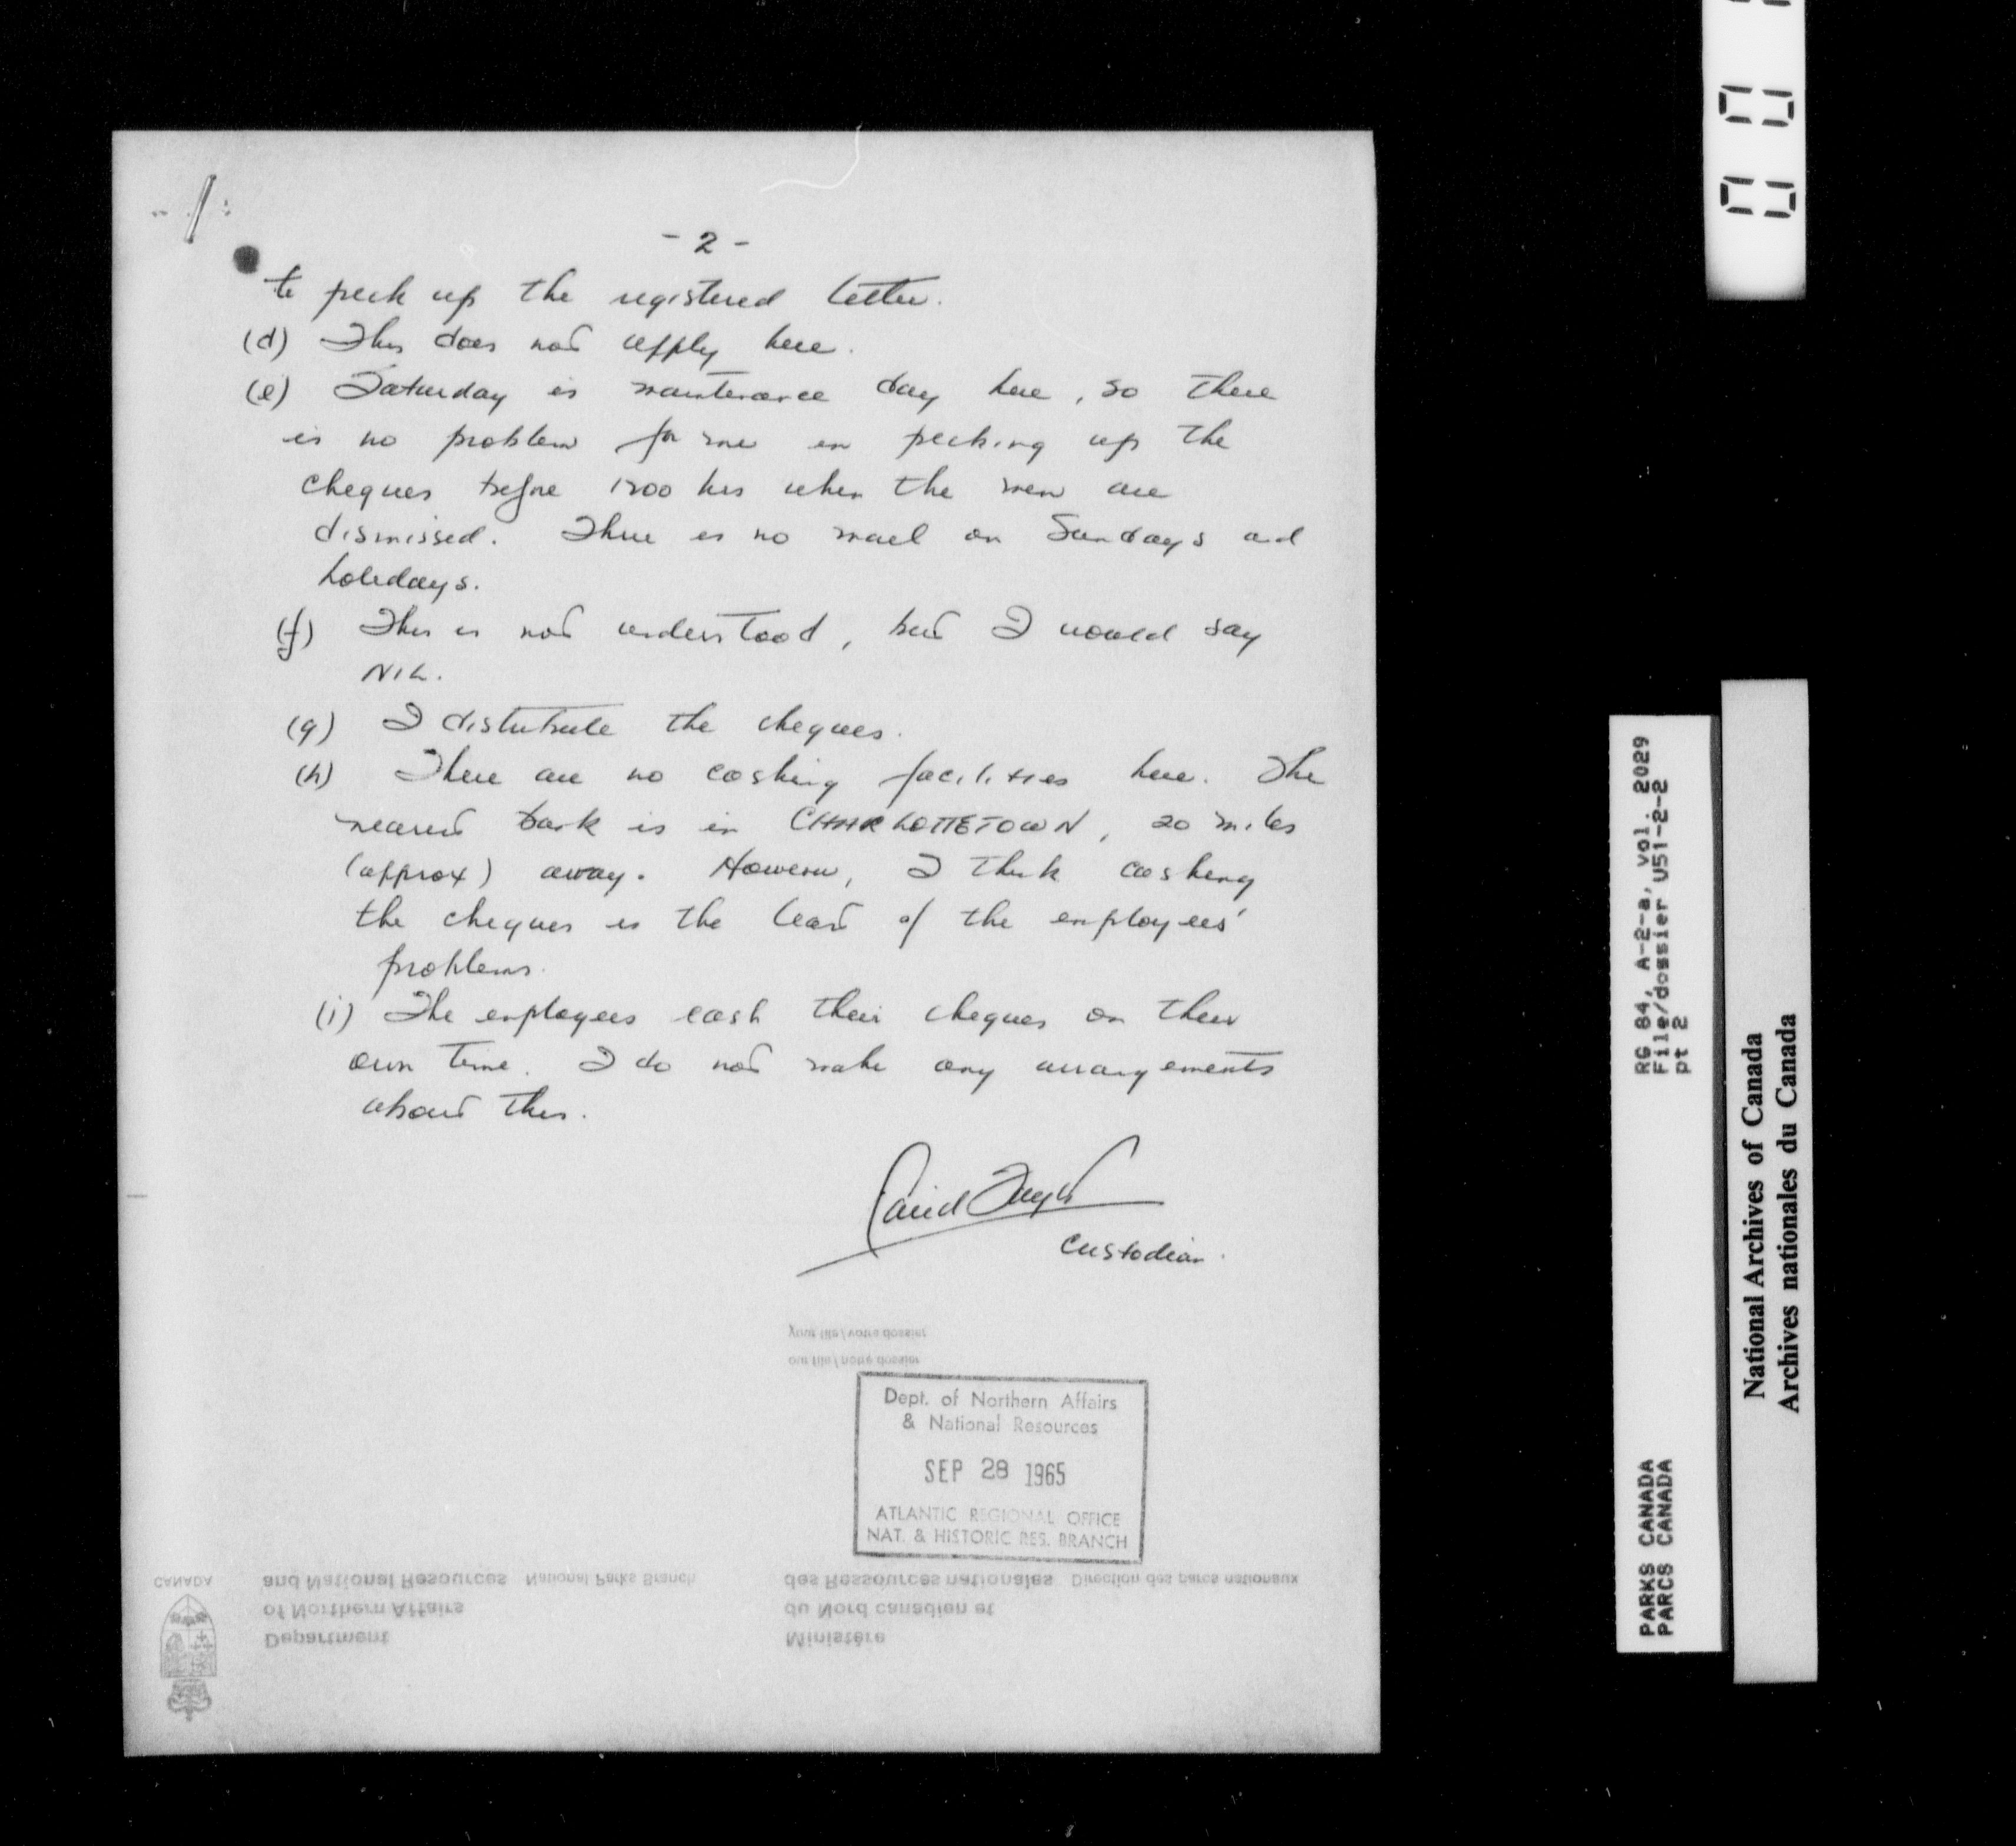 - 2 -
to pick up the registered letter.
(d) This does not apply here.
(e) Saturday is maintenance day here, so there
is no problem for me in picking up the
cheques before 1200 hrs when the men are
dismissed. There is no mail on Sundays and
holidays.
(f) This is not understood, but I would say
NIL.
(g) I distribute the cheques.
(h) There are no cashing facilities here. The
nearest bank is in CHARLOTTETOWN, 20 miles
(approx) away. However, I think cashing
the cheques is the least of the employees'
problems.
(i) The employees cash their cheques on their
own time. I do not make any arrangements
about this.
David
Custodian.
your file/votre dossier
our file/notre dossier
Dept. of Northern Affairs
& National Resources
SEP 28 1965
ATLANTIC REGIONAL OFFICE
NAT. & HISTORIC RES. BRANCH
CANADA
Department
of Northern Affairs
and National Resources National Parks Branch
Ministère
du Nord canadien et
des Ressources nationales Direction des parcs nationaux
RG 84, A-2-a, vol. 2029
File/dossier U51-2-2
pt 2
PARKS CANADA
PARCS CANADA
National Archives of Canada
Archives nationales du Canada